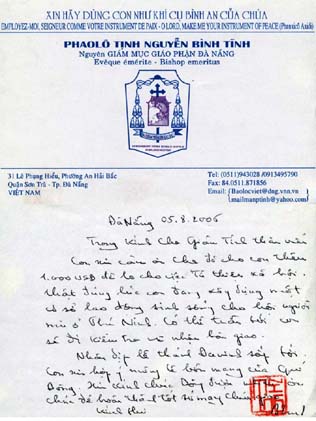 XIN HÃY DÙNG CON NHƯ KHÍ CỤ BÌNH AN CỦA CHÚA
EMPLOYEZ-MOI, SEIGNEUR COMME VOTRE INSTRUMENT DE PAIX - O LORD, MAKE ME YOUR INSTRUMENT OF PEACE
PHAOLÔ TỊNH NGUYỄN BÌNH TĨNH
Nguyên GIÁM MỤC GIÁO PHẬN ĐÀ NẴNG
Evêque émérite - Bishop emeritus
31 Lê Phụng Hiểu, Phường An Hải Bắc
Quận Sơn Trà - Tp. Đà Nẵng
VIỆT NAM
Tel: (0511)943028 /0913495790
Fax: 84.0511.871856
Email: {Baolocviet@dng.vnn.vn
{mailmanptinh@yahoo.com}
Đà Nẵng 05.8.2006
Trọng kính Cha Giám Tỉnh thân mến
Con xin cám ơn Cha đã cho con thêm
1.000 USD để lo cho việc từ thiện xã hội.
Thật đúng lúc con đang xây dựng một
cơ sở lao động sinh sống cho hội người
mù ở Phú Ninh. Có thể tuần tới con
sẽ đi kiểm tra và nhận bàn giao.
Nhân dịp lễ thánh sắp tới,
Con xin hợp ý mừng lễ bổn mạng của Quí
Dòng. Xin kính chúc Dòng
chúc để hoàn thành tốt sứ mạng Chúa
Kính thư